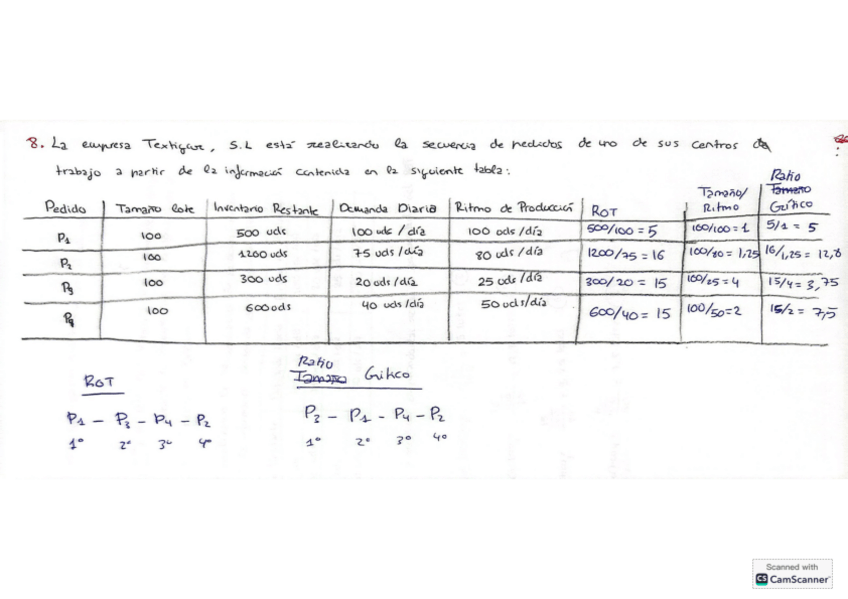 8. La empresa Textigar, S.L está realizando la secuencia de pedidos de uno de sus centros de
trabajo a partir de la información contenida en la siguiente tabla:
Pedido Tamaño lote Inventario Restante Demanda Diaria Ritmo de Producción ROT Tamaño/Ritmo Ratio Tamaño Crítico
P1 100 500 uds 100 uds / día 100 uds /día 500/100 = 5 100/100 = 1 5/1 = 5
P2 100 1200 uds 75 uds /día 80 uds /día 1200/75 = 16 100/80 = 1,25 16/1,25 = 12,8
P3 100 300 uds 20 uds /día 25 uds /día 300/20 = 15 100/25 = 4 15/4 = 3,75
P4 100 600 uds 40 uds /día 50 uds/día 600/40 = 15 100/50=2 15/2 = 7,5
ROT
P1 – P3 – P4 – P2
1º 2º 3º 4º
Ratio
Tamaño Crítico
P3 – P1 – P4 – P2
1º 2º 3º 4º
Scanned with
CS CamScanner